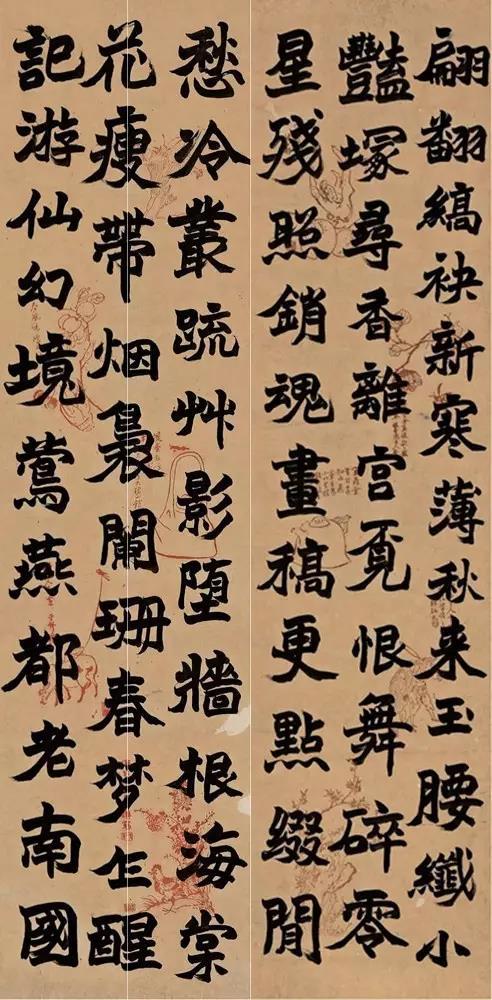 翩翻縞袂新寒薄秋来玉腰纖小
豔塚尋香離宮覓恨舞碎零
星殘照銷魂畫稿更點綴閒
愁冷叢疏艸影墮牆根海棠
花瘦帶烟裊闌珊春梦乍醒
記游仙幻境鶯燕都老南國